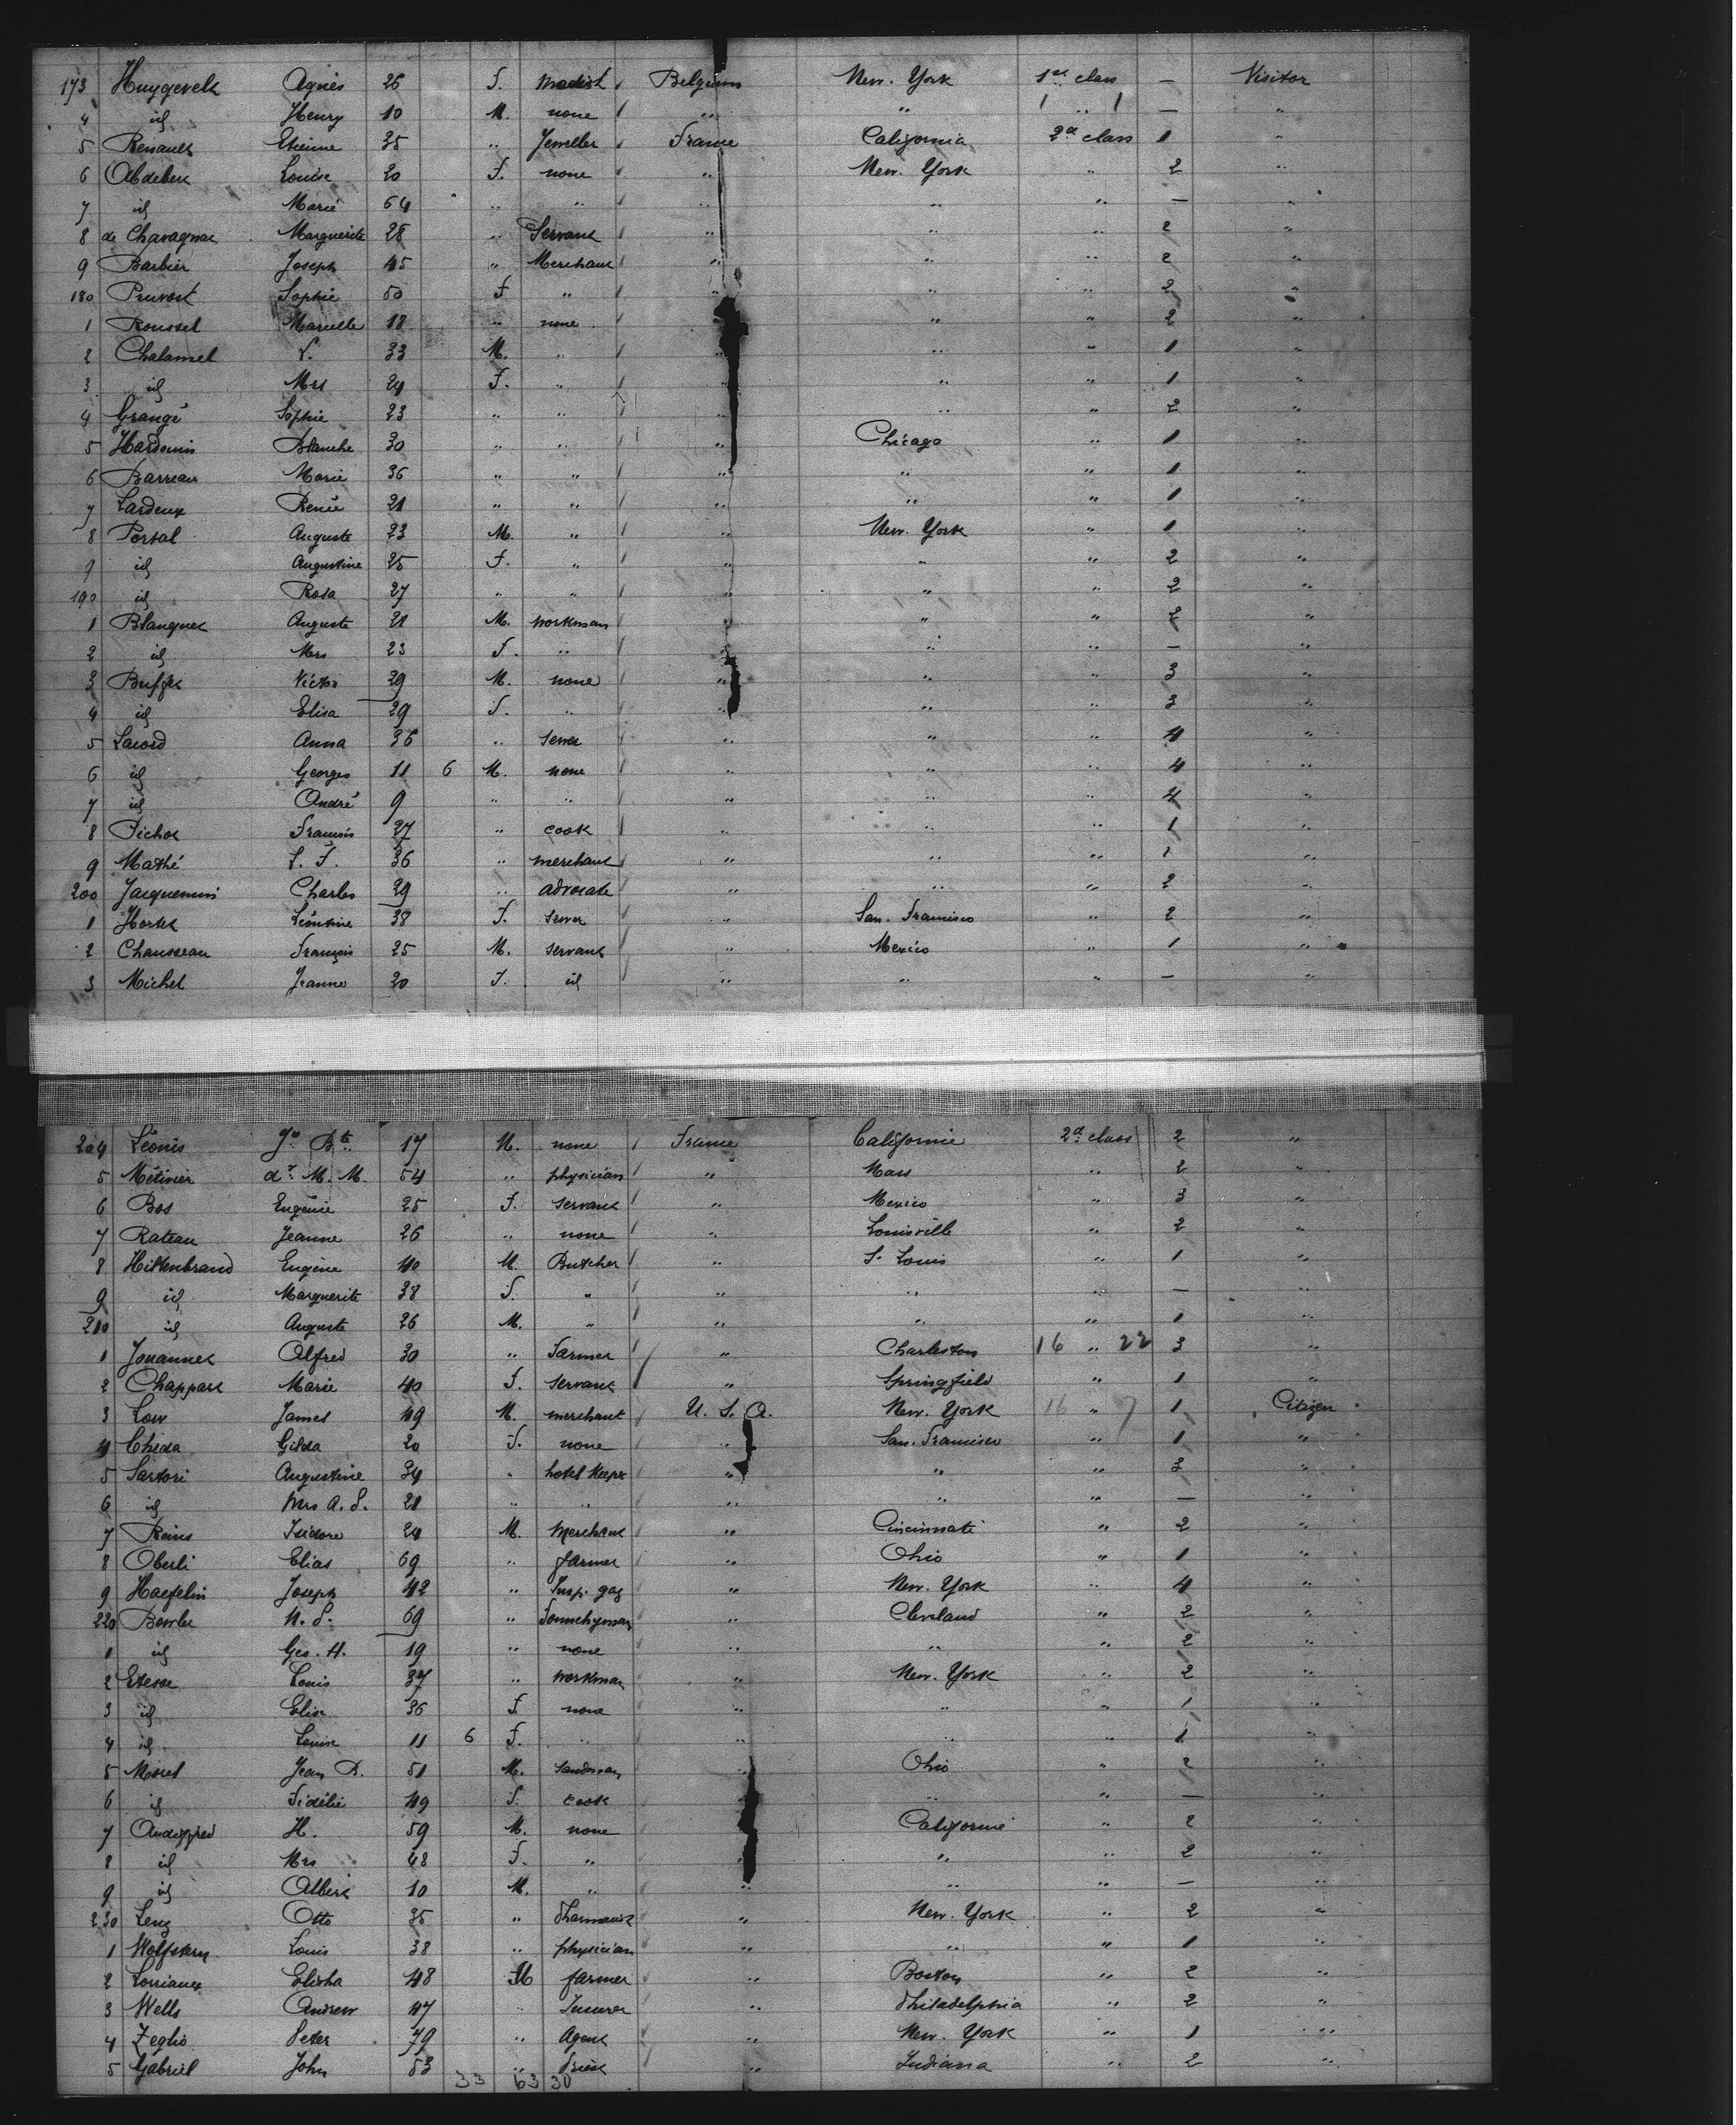 173 Huygevelt Agnès 26 F. Modist Belgium New. York 1st class — Visitor
4 id Henry 10 M. none " " 1 " 1 — "
5 Renault Etienne 35 " Jeweller France California 2d class 1 "
6 Abdeben Louise 20 F. none " New. York " 2 "
7 id Marie 64 " " " " " — "
8 de Chavagnac Marguerite 28 " Servant " " " 2 "
9 Barbier Joseph 45 " Merchant " " " 2 "
180 Pruvost Sophie 50 F " " " " 2 "
1 Roussel Marcelle 18 " none " " 2 "
2 Chalamel V. 33 M. " " " " 1 "
3 id Mrs 24 F. " " " " 1 "
4 Grangé Sophie 23 " " " " " 2 "
5 Hardouin Blanche 30 " " " Chicago " 1 "
6 Barreau Marie 36 " " " " " 1 "
7 Lardeux Renée 21 " " " " " 1 "
8 Portal Auguste 23 M. " " New. York " 1 "
9 id Augustine 25 F. " " " " 2 "
190 id Rosa 27 " " " " " 2 "
1 Blanquet Auguste 31 M. workman " " " 2 "
2 id Mrs 23 F. " " " " — "
3 Buffet Victor 29 M. none " " " 3 "
4 id Elisa 29 F. " " " " 3 "
5 Lacord Anna 36 " sewer " " " 4 "
6 id Georges 11 6 M. none " " " 4 "
7 id André 9 " " " " " 4 "
8 Pichot François 27 " cook " " " 1 "
9 Mathé L. F. 36 " merchant " " " 1 "
200 Jacquemin Charles 29 " advocate " " " 2 "
1 Hortet Léontine 38 F. sewer " San. Francisco " 2 "
2 Chausseau François 25 M. servant " Mexico " 1 "
3 Michel Jeanne 20 F. id " " " — "
204 Léonis Jn Bte 17 M. none France Californie 2d class 2 "
5 Métivier dr M. M. 54 " physician " Mass " 2 "
6 Bos Eugénie 25 F. servant " Mexico " 3 "
7 Rateau Jeanne 26 " none " Louisville " 2 "
8 Hiltenbrand Eugène 40 M. Butcher " St Louis " 1 "
9 id Marguerite 38 F. " " " " — "
210 id Auguste 26 M. " " " " 1 "
1 Jouannet Alfred 30 " Farmer " Charleston 16 " 22 3 "
2 Chappart Marie 40 F. servant " Springfield " 1 "
3 Low James 49 M. merchant U. S. A. New. York 16 " 7 1 Citizen
4 Cheda Gilda 20 F. none " San. Francisco " 1 "
5 Sartori Augustine 34 " hotel keeper " " " 3 "
6 id Mrs A. S. 21 " " " " " — "
7 Reins Isidore 24 M. Merchant " Cincinnati " 2 "
8 Oberli Elias 69 " farmer " Ohio " 1 "
9 Haefelin Joseph 42 " Insp. gas " New. York " 4 "
220 Bowler N. P. 69 " " Cleveland " 2 "
1 id Geo. H. 19 " none " " " 2 "
2 Etesse Louis 37 " workman " New. York " 2 "
3 id Elise 36 F. none " " " 1 "
4 id Louise 11 6 F. " " " " 1 "
5 Morel Jean B. 51 M. " Ohio " 2 "
6 id Fidélie 49 F. cook " " " — "
7 Audiffred H. 59 M. none Californie " 2 "
8 id Mrs 48 F. " " " " 2 "
9 id Albert 10 M. " " " " — "
230 Lenz Otto 35 " Pharmacist " New. York " 2 "
1 Wolfstern Louis 38 " physician " " " 1 "
2 Lorriaux Elisha 48 M farmer " Boston " 2 "
3 Wells Andrew 47 " " Philadelphia " 2 "
4 Zeglio Peter 79 " Agent " New. York " 1 "
5 Gabriel John 53 " Priest " Indiana " 2 "
33 63 30